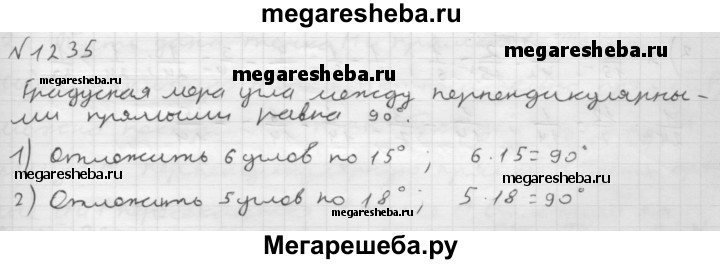 megaresheba.ru
N1235
megaresheba.ru
megaresheba.ru
megaresheba.ru
Градусная мера угла между перпендикулярны-
ми прямыми равна 90°.
1) Отложить 6 углов по 15° ; 6·15=90°
megaresheba.ru
megaresheba.ru
2) Отложить 5 углов по 18° ; 5·18=90°
megaresheba.ru
megaresheba.ru
Мегарешеба.ру